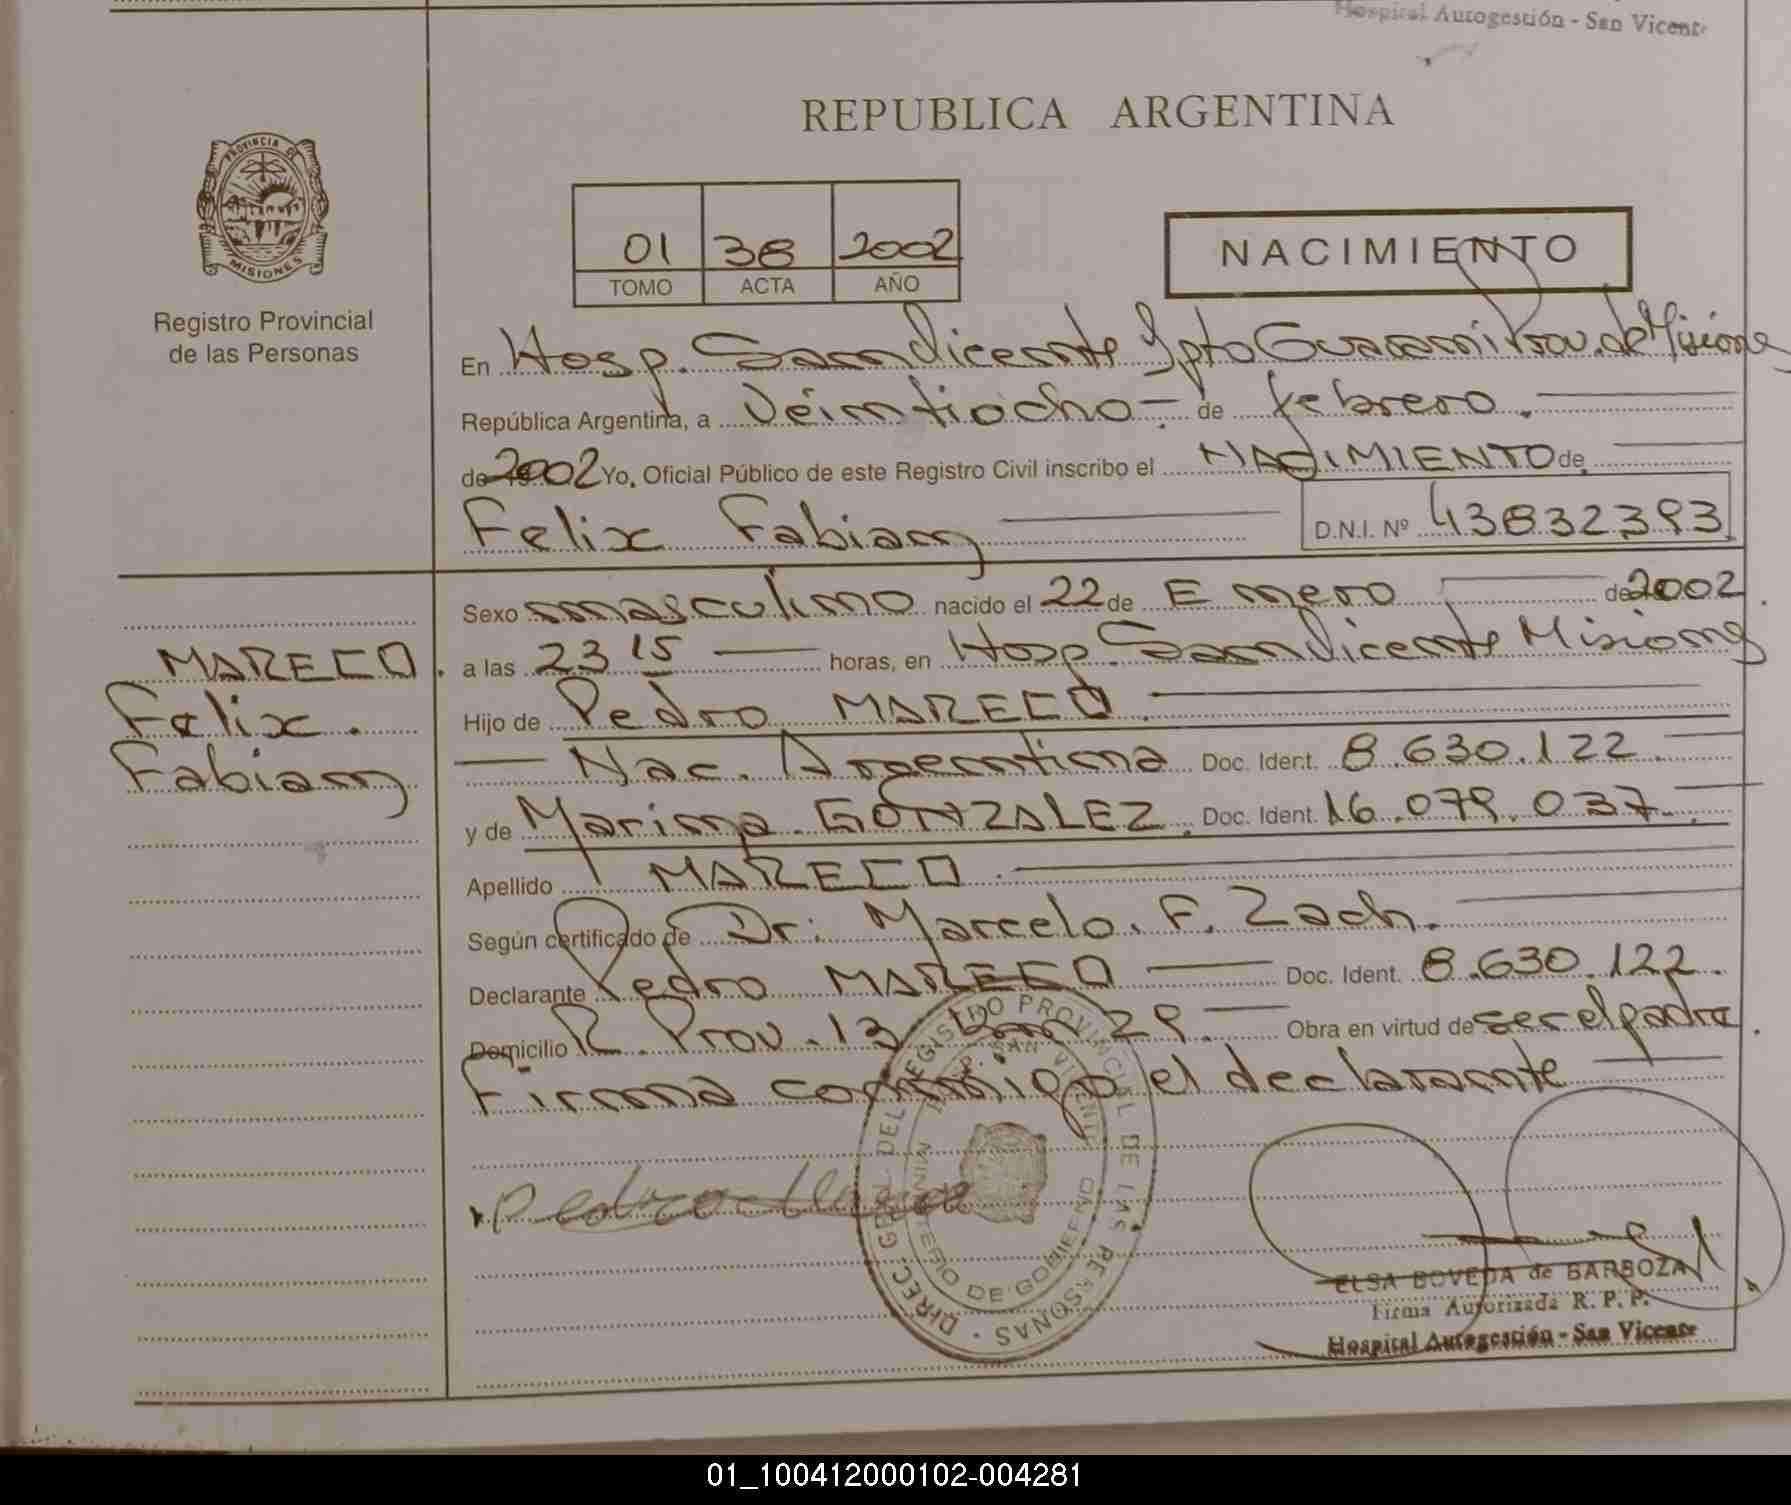 Hospital Autogestión - San Vicente
REPUBLICA ARGENTINA
PROVINCIA DE
MISIONES
Registro Provincial
de las Personas
01 38 2002
TOMO ACTA AÑO
NACIMIENTO
En Hosp. San Vicente Dpto Guarani Prov. de Misiones
República Argentina, a Veintiocho - de febrero.
de 2002 Yo, Oficial Público de este Registro Civil inscribo el NACIMIENTO de
Felix Fabian D.N.I. Nº 43832393
Sexo masculino nacido el 22 de Enero de 2002
MARECO
Felix.
Fabian
a las 23 15 horas, en Hosp. San Vicente Misiones
Hijo de Pedro MARECO
Nac. Argentina Doc. Ident. 8.630.122
y de Marina GONZALEZ. Doc. Ident. 16.079.037
Apellido MARECO.
Según certificado de Dr: Marcelo. F. Zach.
Declarante Pedro MARECO Doc. Ident. 8.630.122.
Domicilio R. Prov. 13 km 29. Obra en virtud de ser el padre.
Firma conmigo el declarante
DIREC. GRAL DEL REGISTRO PROVINCIAL DE LAS PERSONAS
HOSP. SAN VICENTE
MINISTERIO DE GOBIERNO
ELSA BOVEDA de BARBOZA
Firma Autorizada R. P. P.
Hospital Autogestión - San Vicente
01_100412000102-004281